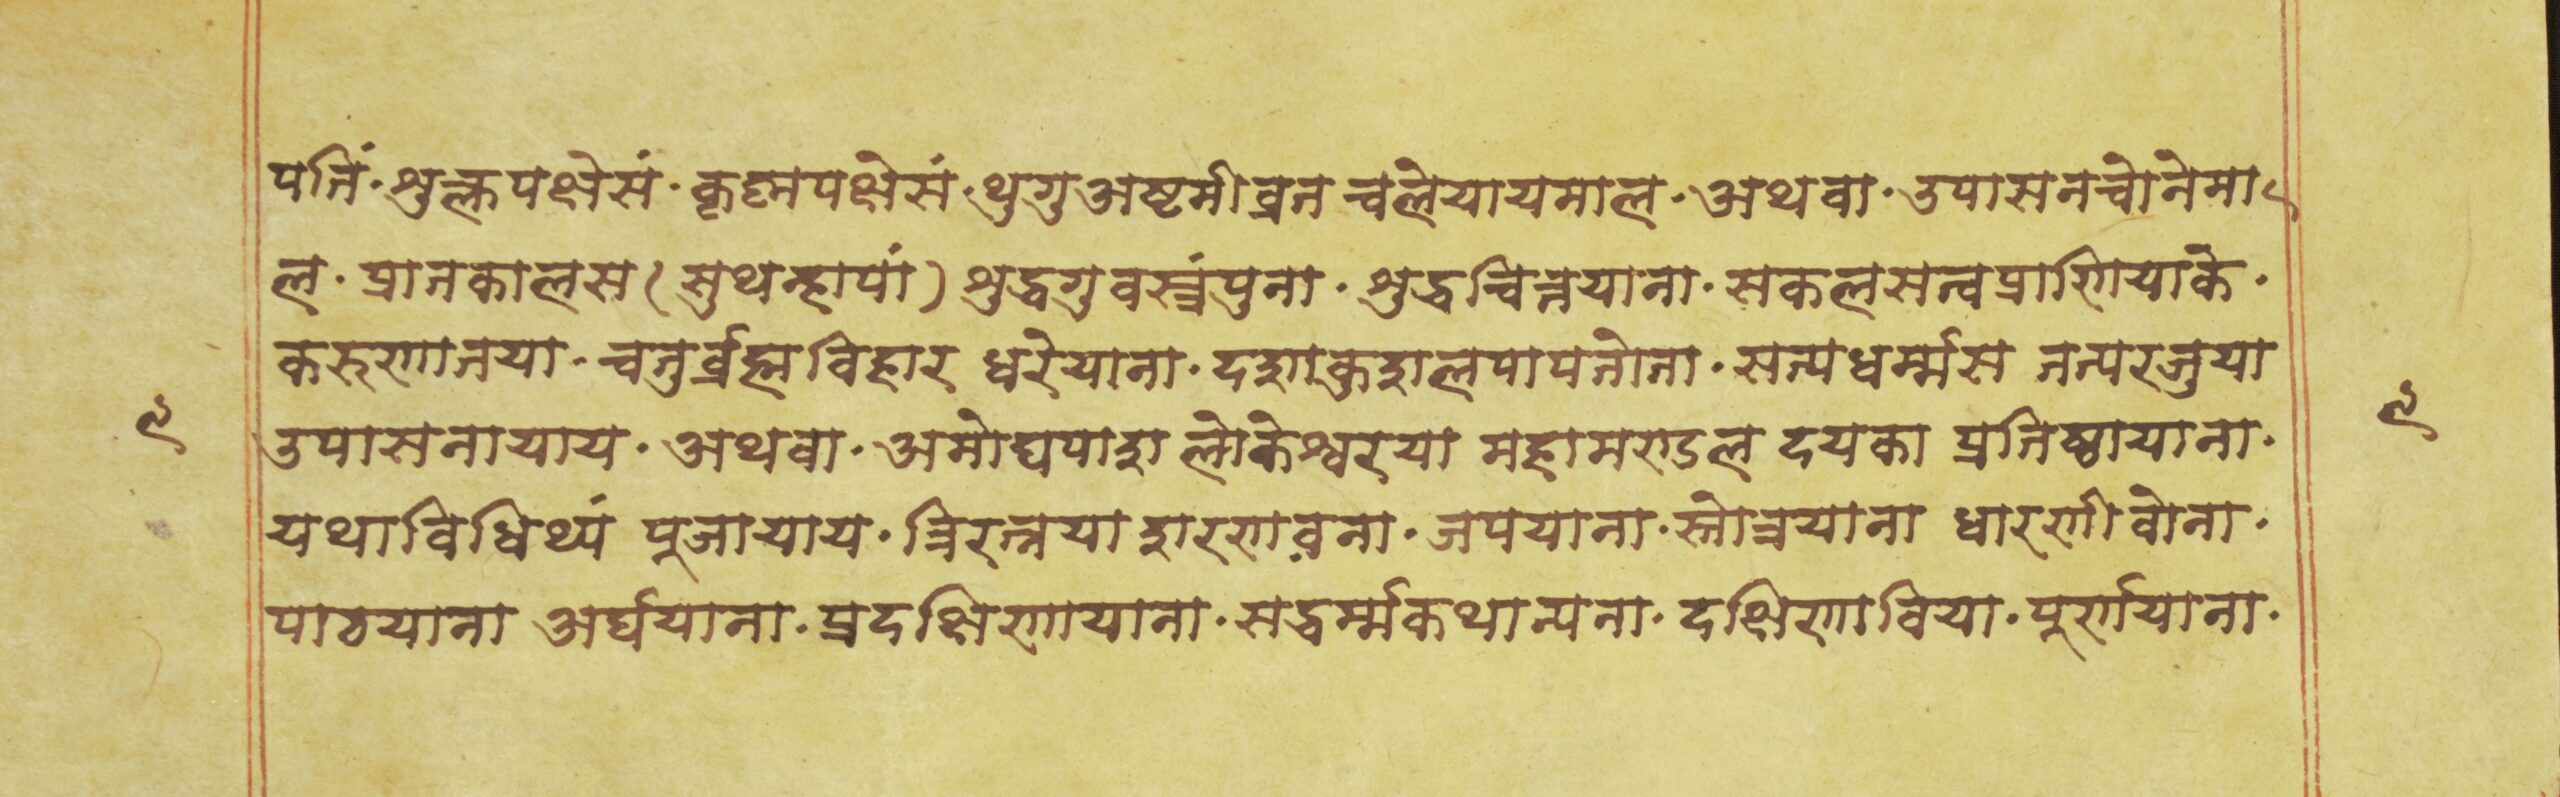 पतिं· शुक्लपक्षेसं· कृष्णपक्षेसं· थुगु अष्टमीव्रत चलेयायमाल· अथवा· उपासनचोनेमा
ल· प्रातकालस (सुथन्हापां) शुद्धगु वस्त्रंपुना· शुद्धचित्तयाना· सकलसत्वप्राणियाके·
करुणातया· चतुर्ब्रह्मविहार धरेयाना· दशाकुशलपापतोता· सत्यधर्म्मस तत्परजुया
९ उपासनायाय· अथवा· अमोघपाश लोकेश्वरया महामण्डल दयका प्रतिष्ठायाना· ९
यथाविधिथ्यं पूजायाय· त्रिरत्नया शरणवना· जपयाना· स्तोत्रयाना धारणीवोना·
पाठयाना अर्घयाना· प्रदक्षिणायाना· सद्धर्म्मकथान्यना· दक्षिणाविया· पूर्णयाना·